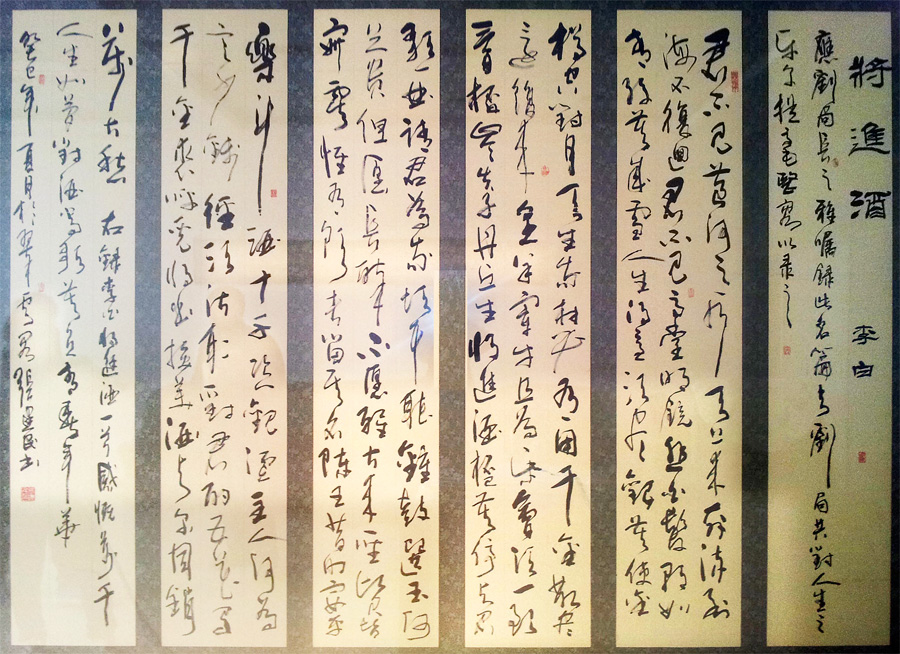 將進酒 李白
應劉局長之雅囑錄此名篇與劉局共對人生之
以录之
君不見黃河之水天上來奔流到
海不復迴君不見高堂明鏡悲白髮朝如
青絲暮成雪人生得意須尽歡莫使金
樽空對月天生我材必有用千金散尽
還復來烹羊宰牛且為樂會須一飲
三百杯岑夫子丹丘生將進酒杯莫停與君
歌一曲請君為我傾耳聽鐘鼓饌玉何
足貴但願長醉不願醒古來聖賢皆
寂寞惟有飲者留其名陳王昔時宴平
樂斗酒十千恣歡謔主人何為
言少錢徑須沽取對君酌五花馬
千金裘呼兒將出換美酒與尔同銷
萬古愁 右錄李白將進酒一首感慨萬千
人生如夢對酒當歌莫負青春年華
癸巳年夏月於張書